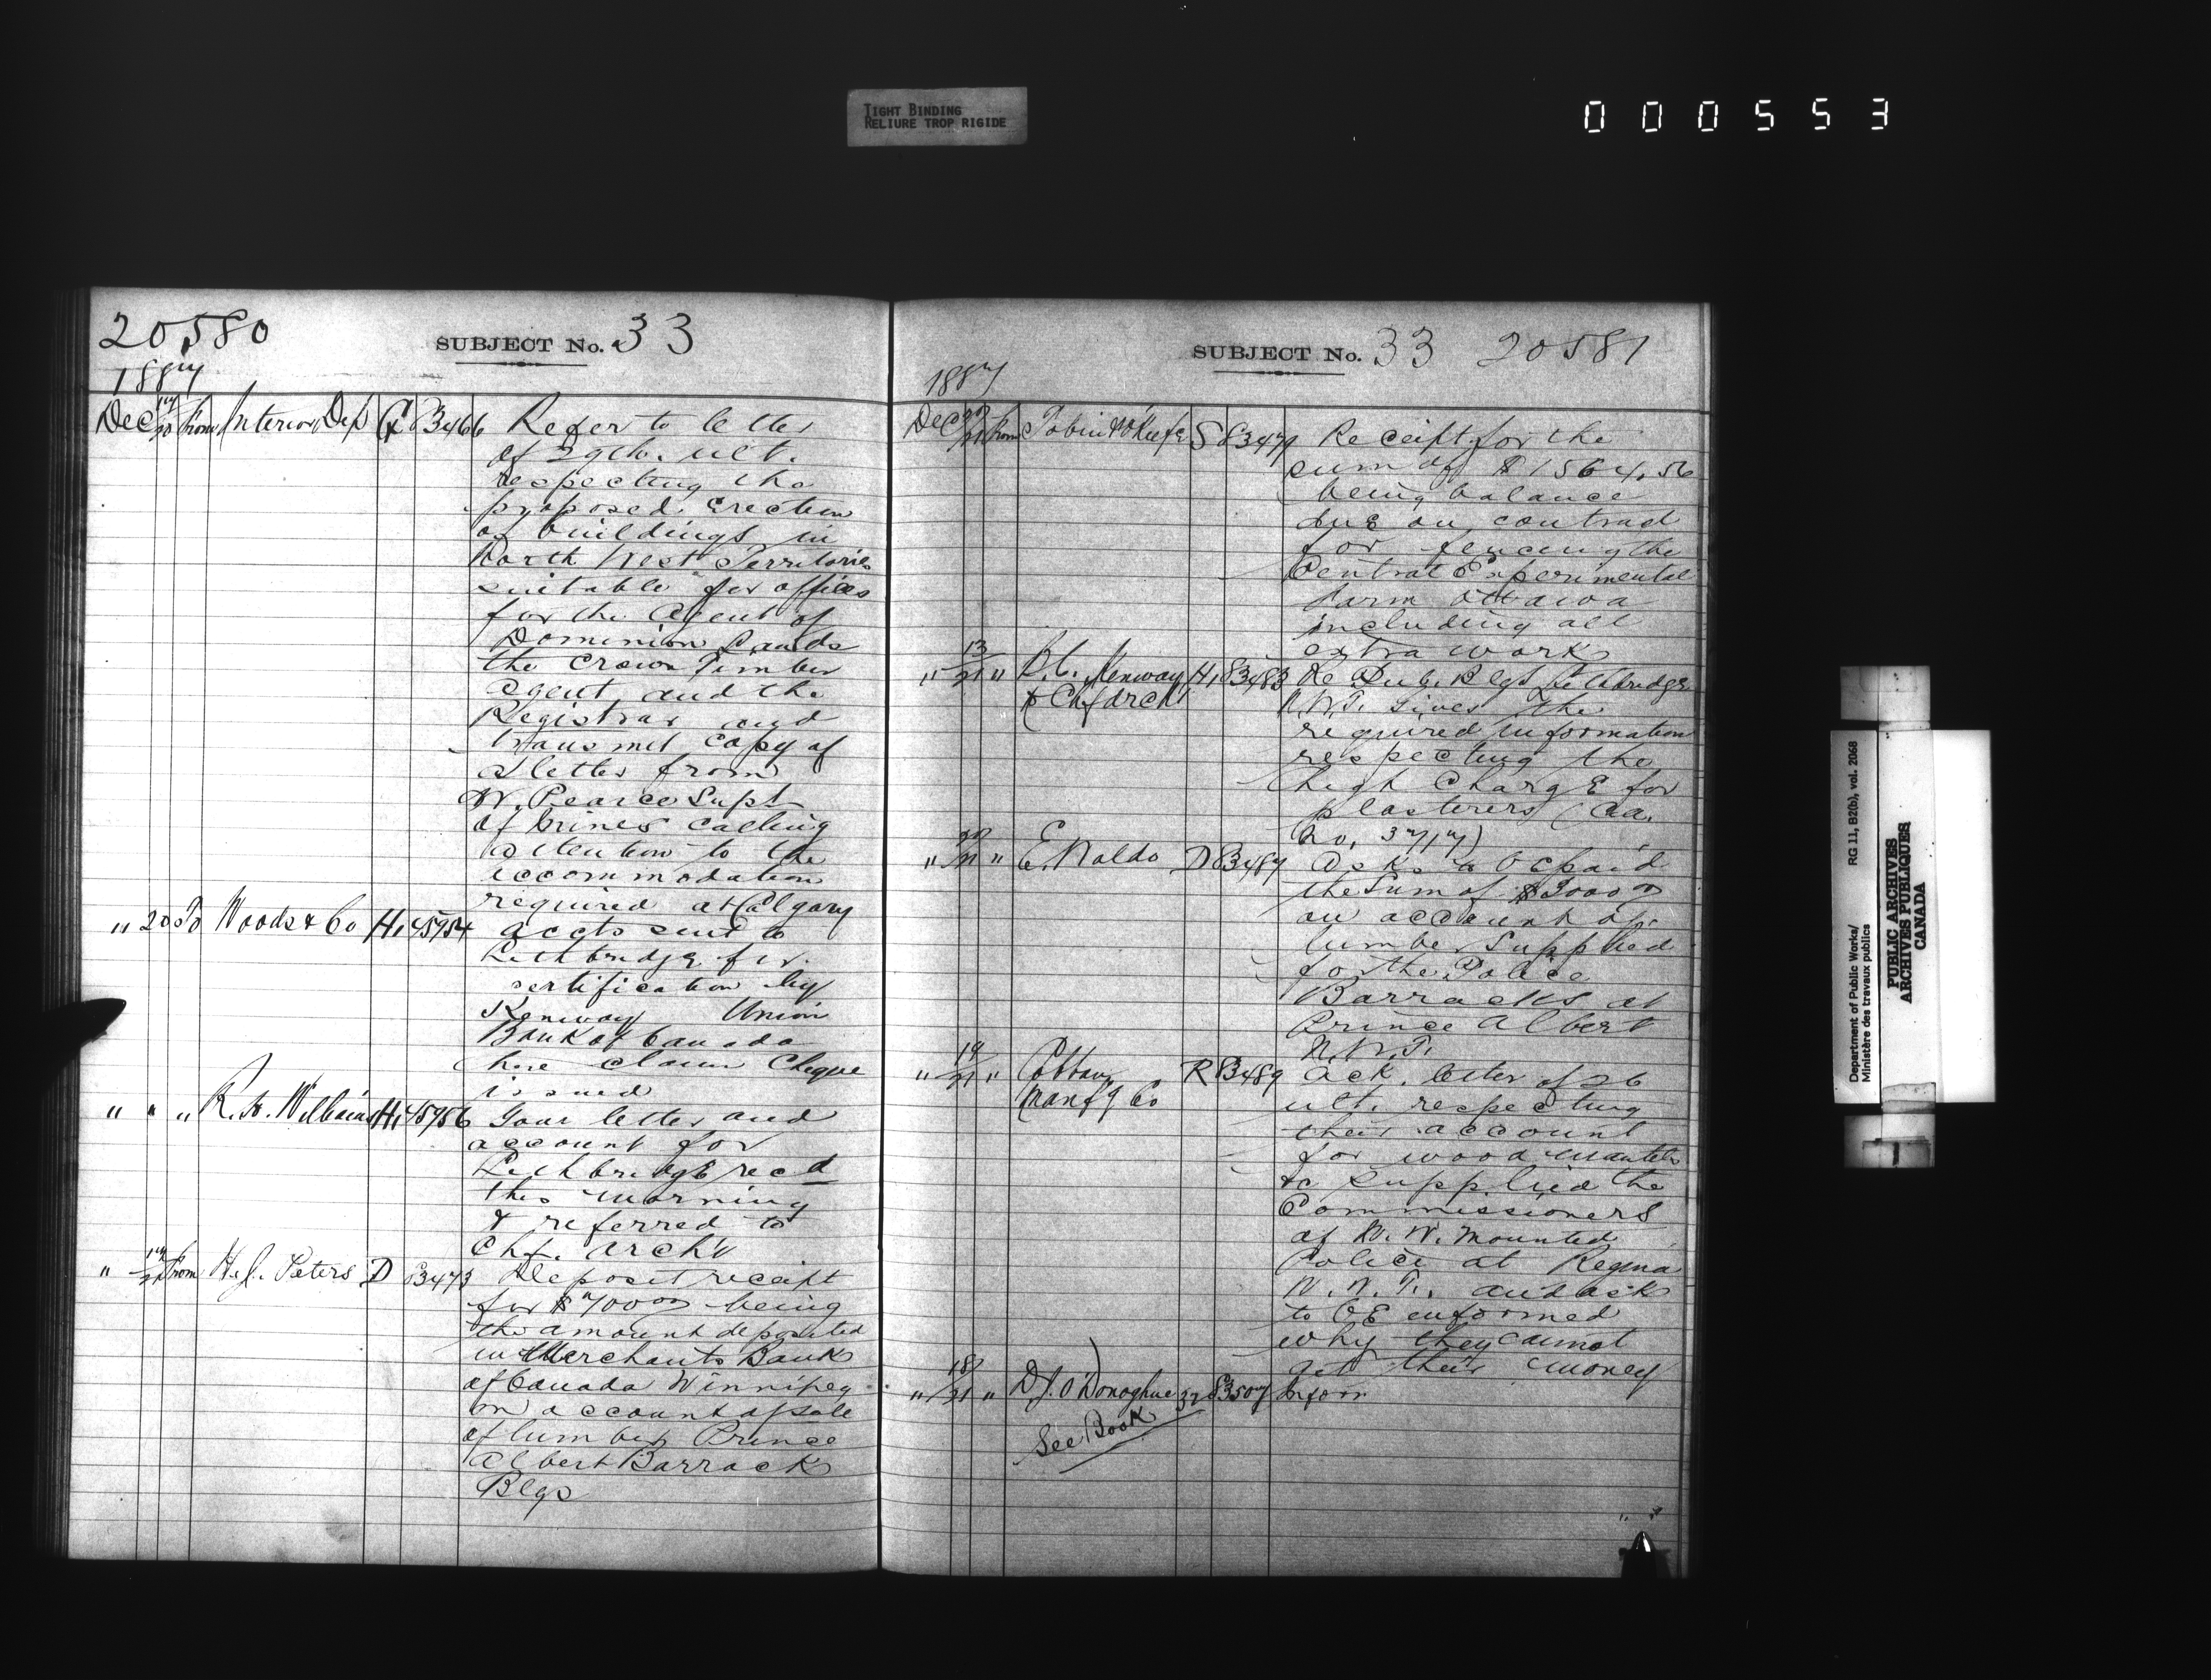 TIGHT BINDING
RELIURE TROP RIGIDE
000553
20580
SUBJECT No. 33
1887
Dec 17/20 from Interior Dep G 83466 Refer to letter
of 29th. ult.
respecting the
proposed Erection
of buildings in
North West Territories
suitable for offices
for the Agent of
Dominion Lands
the Crown Timber
agent and the
Registrar and
transmit copy of
a letter from
W. Pearce Supt
of Mines calling
attention to the
accommodation
required at Calgary
" 20 To Woods & Co H1 45954 accts sent to
Lethbridge for
certification by
Kenway Union
Bank of Canada
here claim Cheque
issued
" " " R. H. Williams H1 45956 Your letter and
account for
Lethbridge recd
this morning
& referred to
Chf. Arch't
" 17/21 from H. J. Peters D 83473 Deposit receipt
for $700 00 being
the amount deposited
in Merchants Bank
of Canada Winnipeg
on account of sale
of lumber Prince
Albert Barrack
Blgs
SUBJECT No. 33 20581
1887
Dec 20/21 from Tobin & O'Keefe S 83479 Receipt for the
sum of $1564.56
being balance
due on contract
for fencing the
Central Experimental
Farm Ottawa
including all
extra work
" 13/21 " Kenway H1 83483 Re Pub. Blgs Lethbridge
& Chf Arch't N.W.T. Gives the
required information
respecting the
high Charge for
plasterers
" 20/21 " D 83487 Asks to be paid
the Sum of $3000 00
on account of
lumber Supplied
for the Police
Barracks at
Prince Albert
N.W.T.
" 19/21 " R 83489 Ack. letter of 26
Manf'g Co ult. respecting
their account
for wood mantels
&c supplied the
Commissioners
of N. W. Mounted
Police at Regina
N. W. T. and ask
to be informed
why they cannot
get their money
" 18/21 " D. J. O'Donoghue 32 83507 Inform
See Book
Department of Public Works/
Ministère des travaux publics
RG 11, B2(b), vol. 2068
PUBLIC ARCHIVES
ARCHIVES PUBLIQUES
CANADA